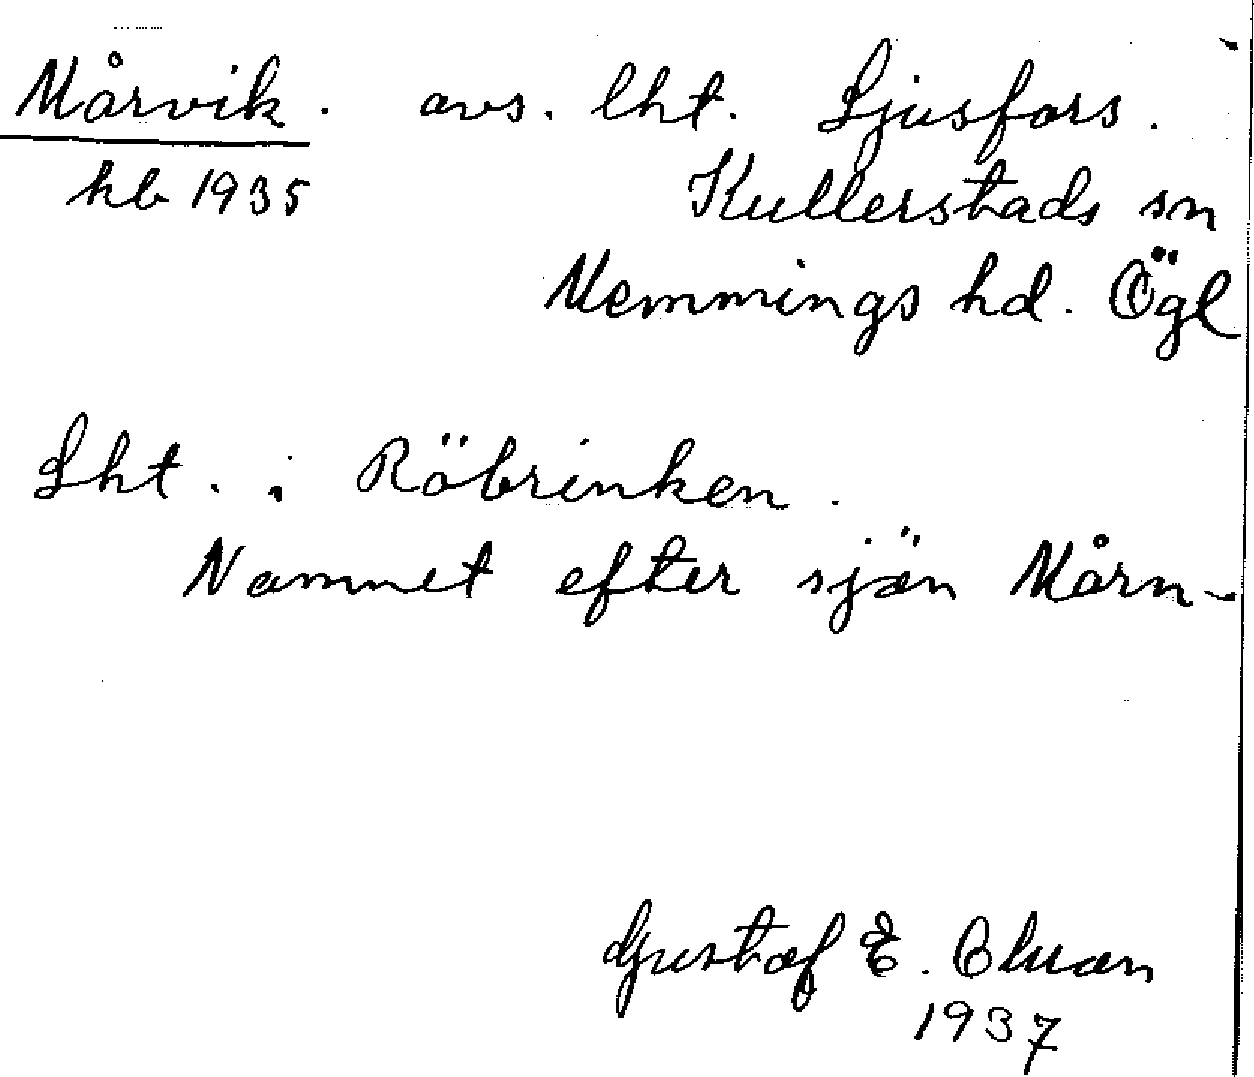 Mårvik. avs. lht. Ljusfors.
kb 1935 Kullerstads sn
Memmings hd. Ögl
Lht. i Röbrinken.
Namnet efter sjön Mårn-
Gustaf E.
1937